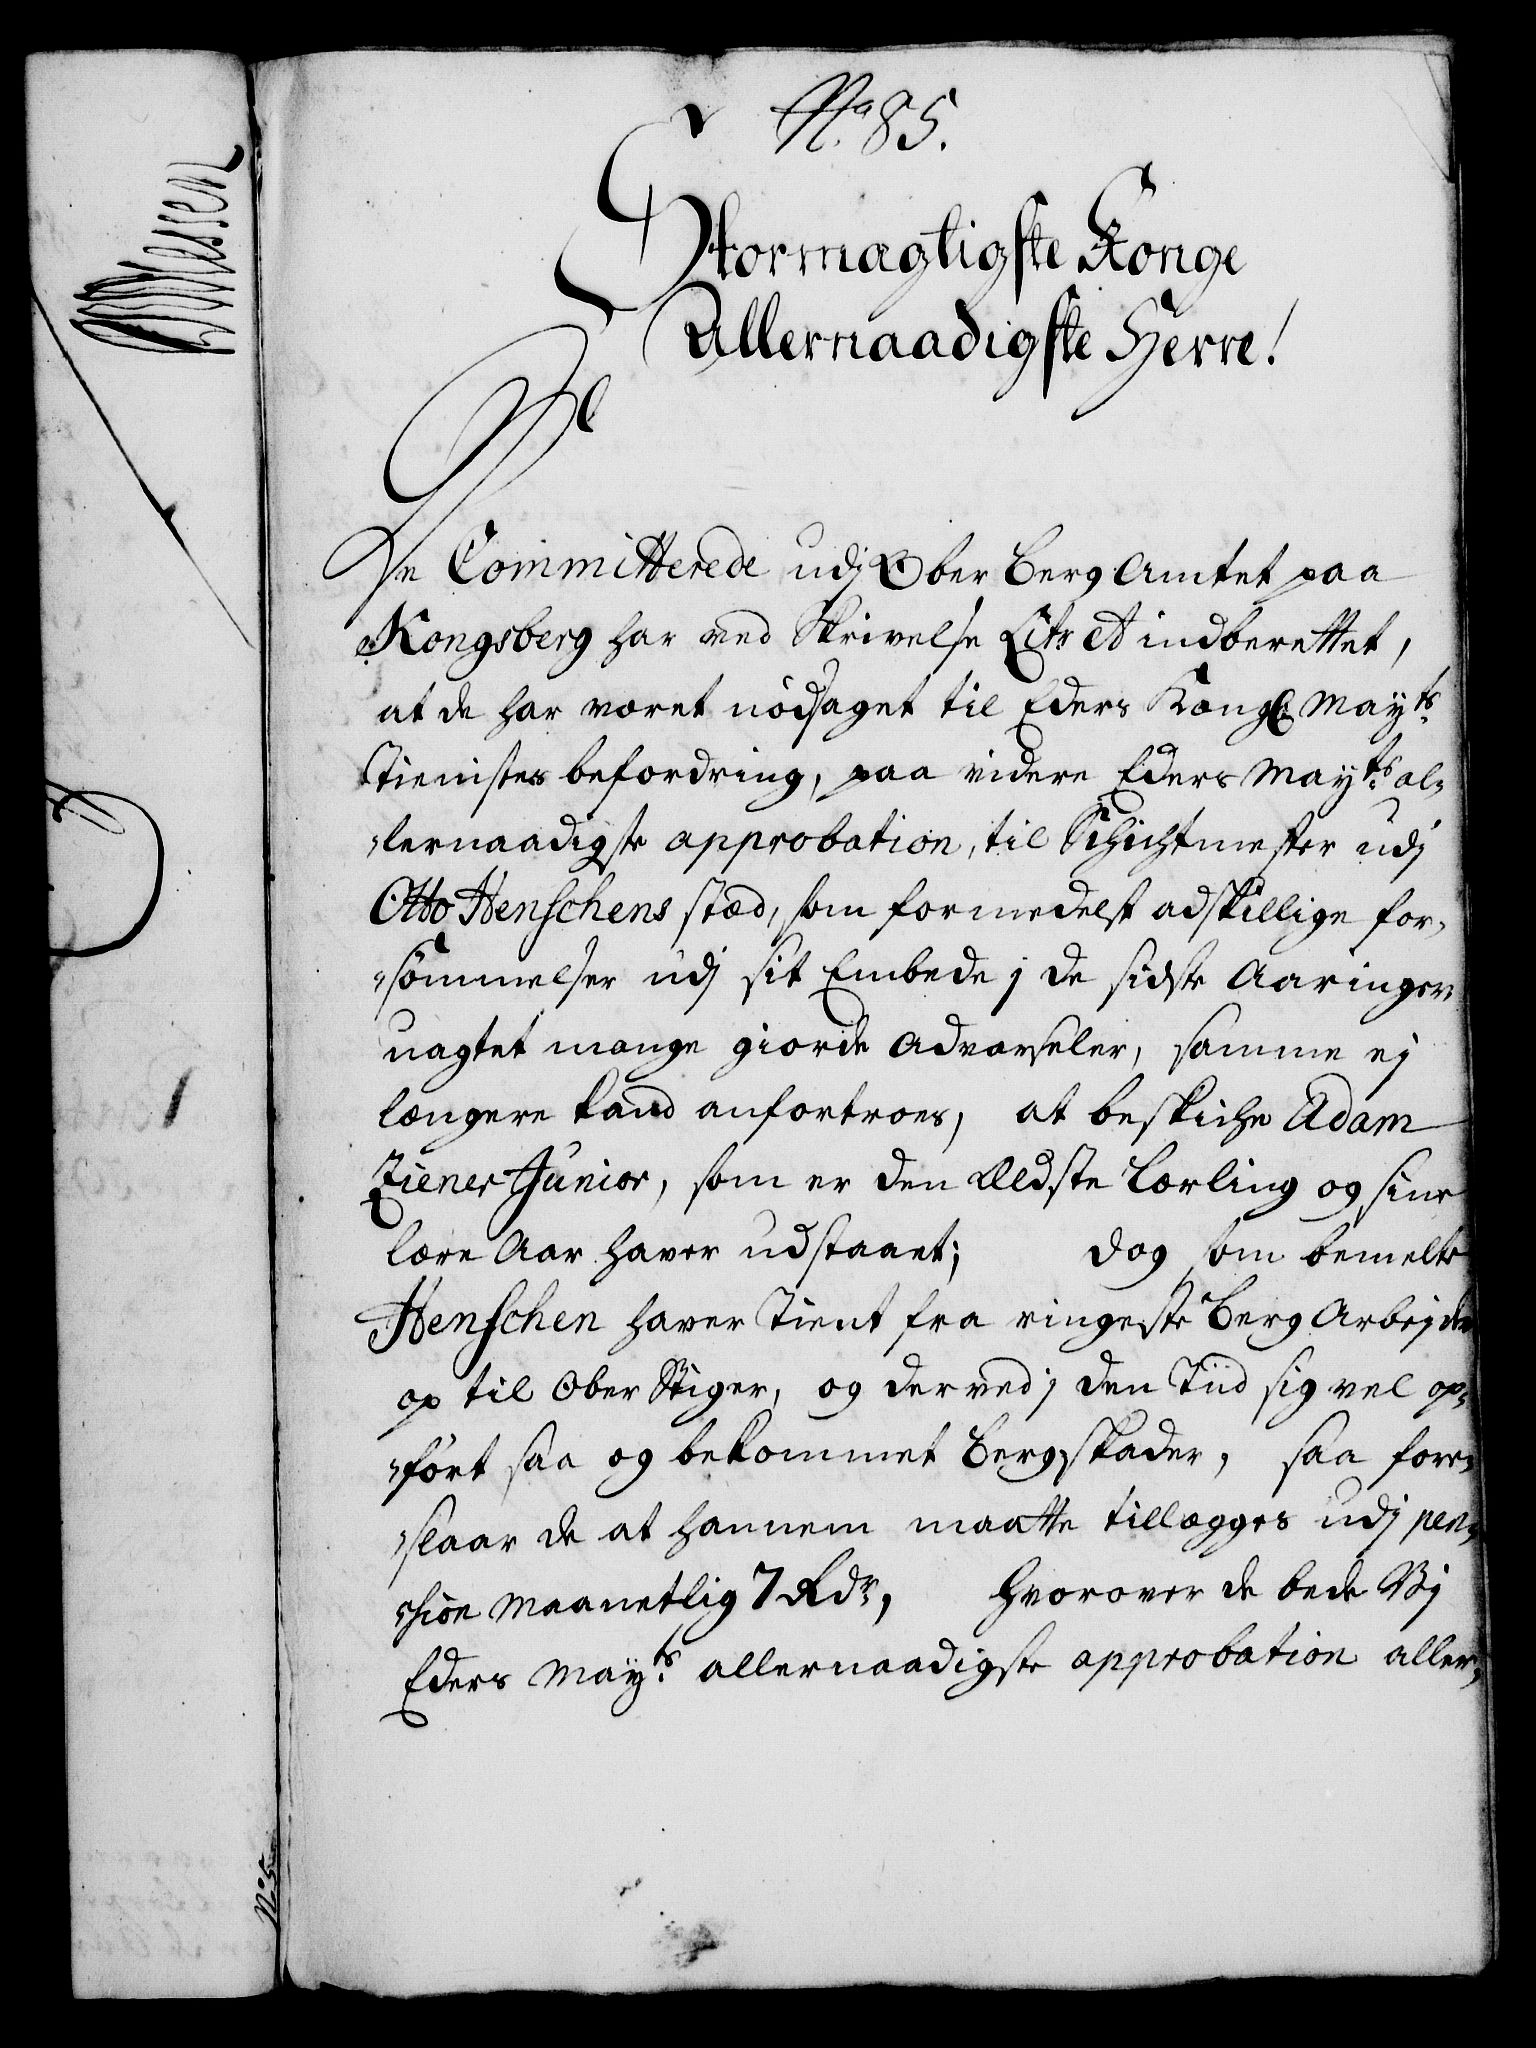 No. 85.
Stormagtigste Konge
Allernaadigste Herre!
De Committerede udj Ober Berg Amtet paa
Kongsberg har ved Skrivelse Litr A indberettet,
at de har været nödsaget til Eders Kongl May.ts
Tienistes befordring, paa videre Eders May.ts al„
„lernaadigste approbation, til Schichtmester udj
Otto Henschens stæd, som formedelst adskillige for„
„sömmelser udj sit Embede j de sidste Aaringer
uagtet mange giorde Advarseler, samme ej
længere kand anfortroes, at beskicke Adam
Ziener Junior, som er den Ældste Lærling og sine
lære Aar haver udstaaet; Dog som bemelte
Henschen haver Tient fra ringeste Berg Arbejder
op til Ober Stiger, og derved j den Tiid sig vel op„
„fört saa og bekommet Bergskader, saa fore„
„slaar de at hannem maatte tillægges udj pen„
„sion Maanetlig 7 Rdr, Hvorover de bede Vj
Eders May.ts allernaadigste approbation aller„
No 5